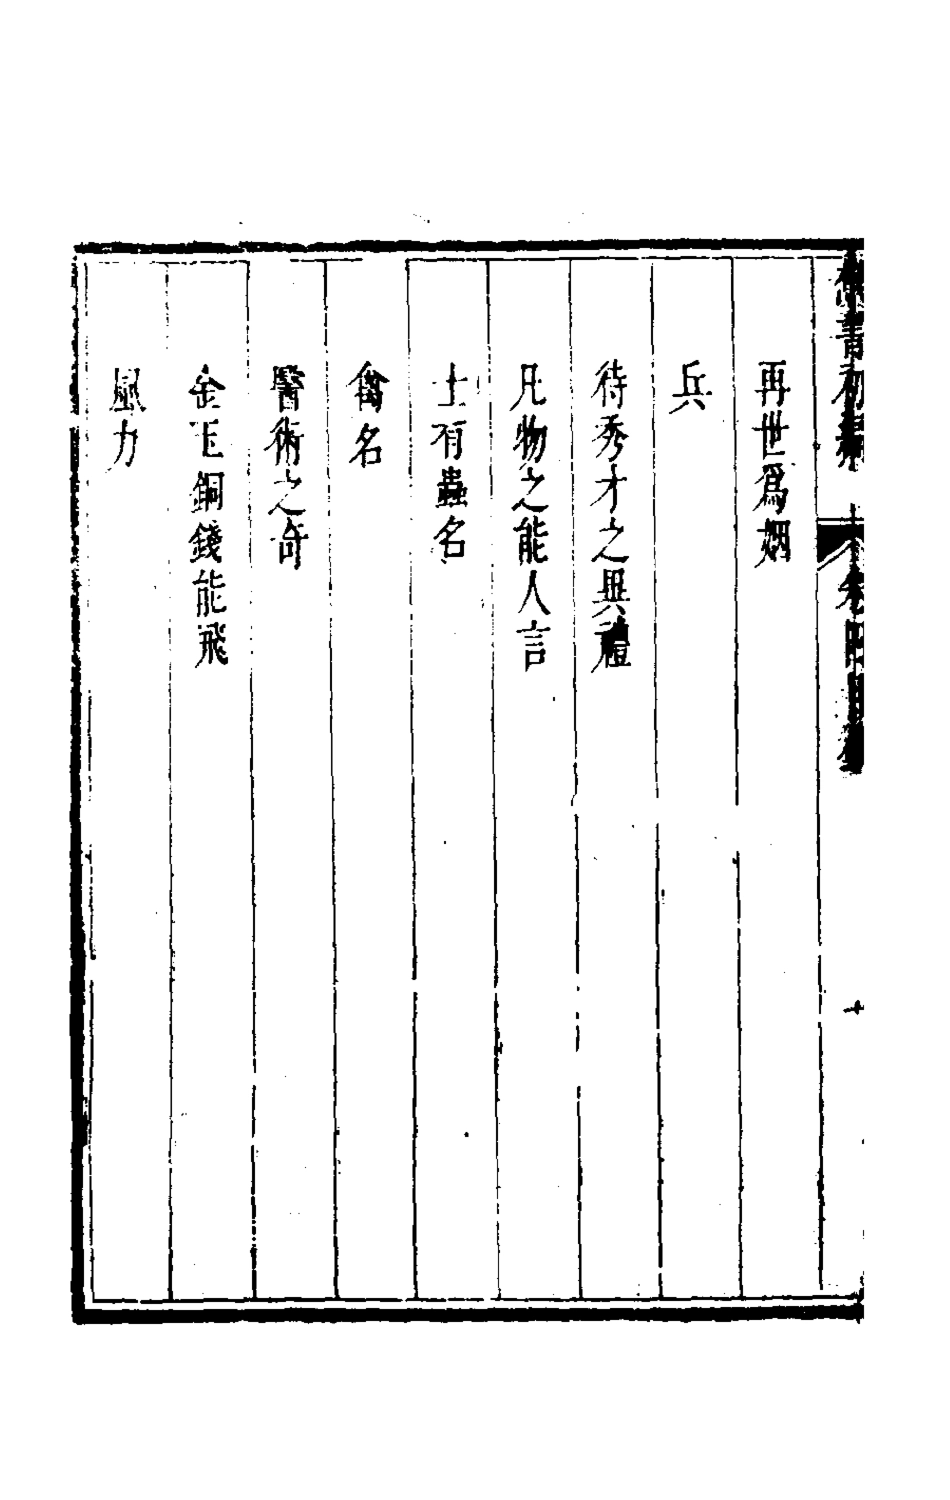 再世爲姻
兵
待秀才之異禮
凡物之能人言
土有蟲名
禽名
醫術之奇
金玉銅錢能飛
風力